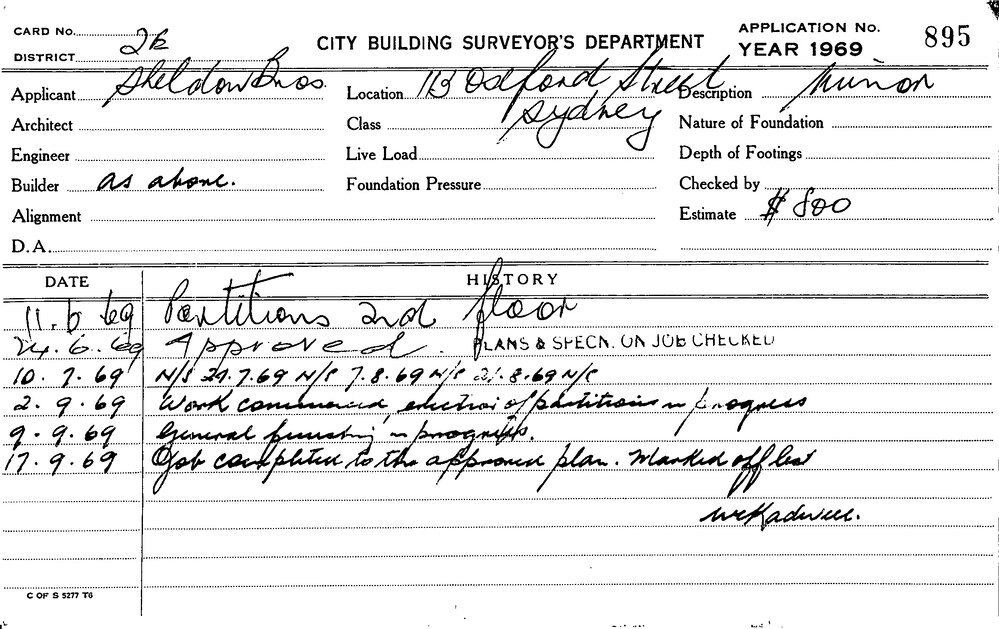 CARD No. 2B
CITY BUILDING SURVEYOR'S DEPARTMENT
APPLICATION No. 895
YEAR 1969
DISTRICT
Applicant Sheldon Bros. Location 113 Oxford Street Description Minor
Architect Class Sydney Nature of Foundation
Engineer Live Load Depth of Footings
Builder as above. Foundation Pressure Checked by
Alignment Estimate $ 800
D.A.
DATE HISTORY
11.6.69 Partitions 2nd floor
24.6.69 Approved. PLANS & SPECN. ON JOB CHECKED
10.7.69 N/S 24.7.69 N/S 7.8.69 N/S 21.8.69 N/S
2.9.69 Work commenced, erection of partitions in progress
9.9.69 General finishing in progress.
17.9.69 Job completed to the approved plan. Marked off list
C OF S 5277 T6